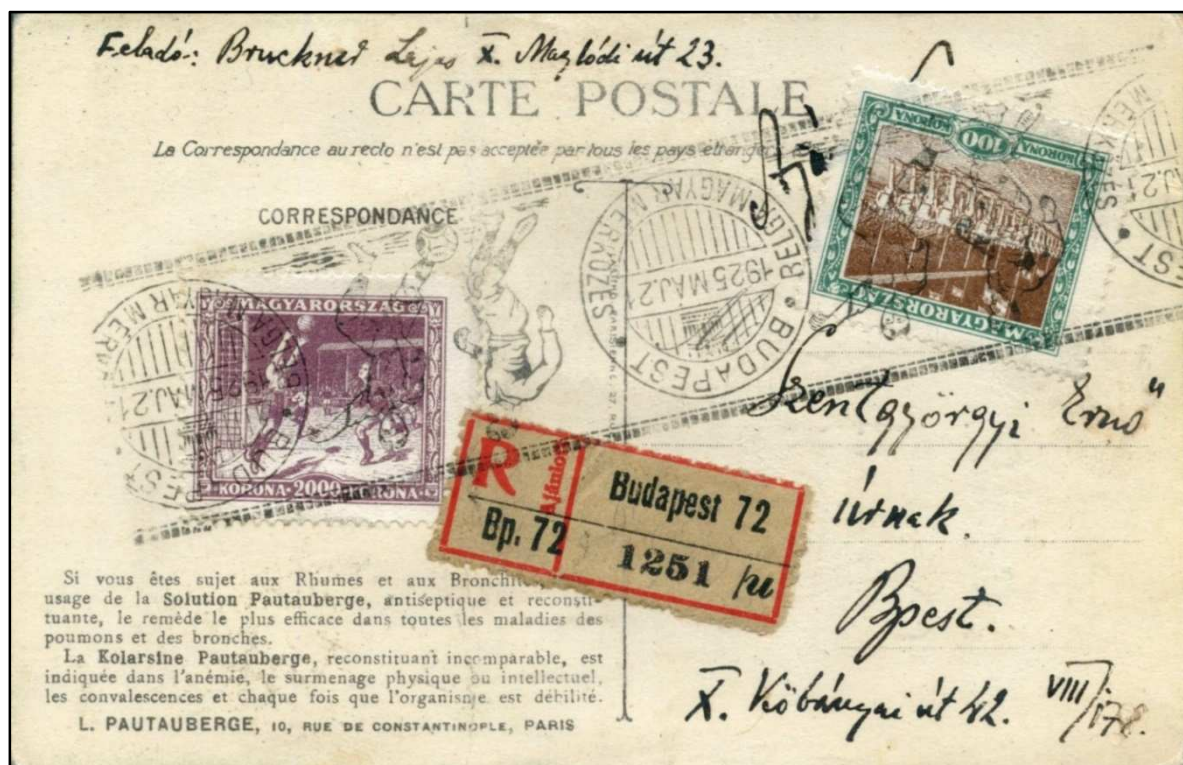 Feladó: Bruckner Lajos X. Maglódi út 23.
CARTE POSTALE
La Correspondance au recto n'est pas acceptée par tous les pays etrangers
CORRESPONDANCE
KORONA 100 KORONA
MAGYARORSZÁG
BELGA MAGYAR MÉRKŐZÉS
1925 MÁJ. 21
BUDAPEST
MAGYARORSZÁG
KORONA · 2000 KORONA
R
Ajánlo
Bp. 72
Budapest 72
1251 /u
Szentgyörgyi Ernő
Úrnak
Bpest.
X. Kőbányai út 42.
VIII/
Si vous êtes sujet aux Rhumes et aux Bronchites
usage de la Solution Pautauberge, antiseptique et reconsti-
tuante, le remède le plus efficace dans toutes les maladies des
poumons et des bronches.
La Kolarsine Pautauberge, reconstituant incomparable, est
indiquée dans l'anémie, le surmenage physique ou intellectuel,
les convalescences et chaque fois que l'organisme est débilité.
L. PAUTAUBERGE, 10, RUE DE CONSTANTINOPLE, PARIS